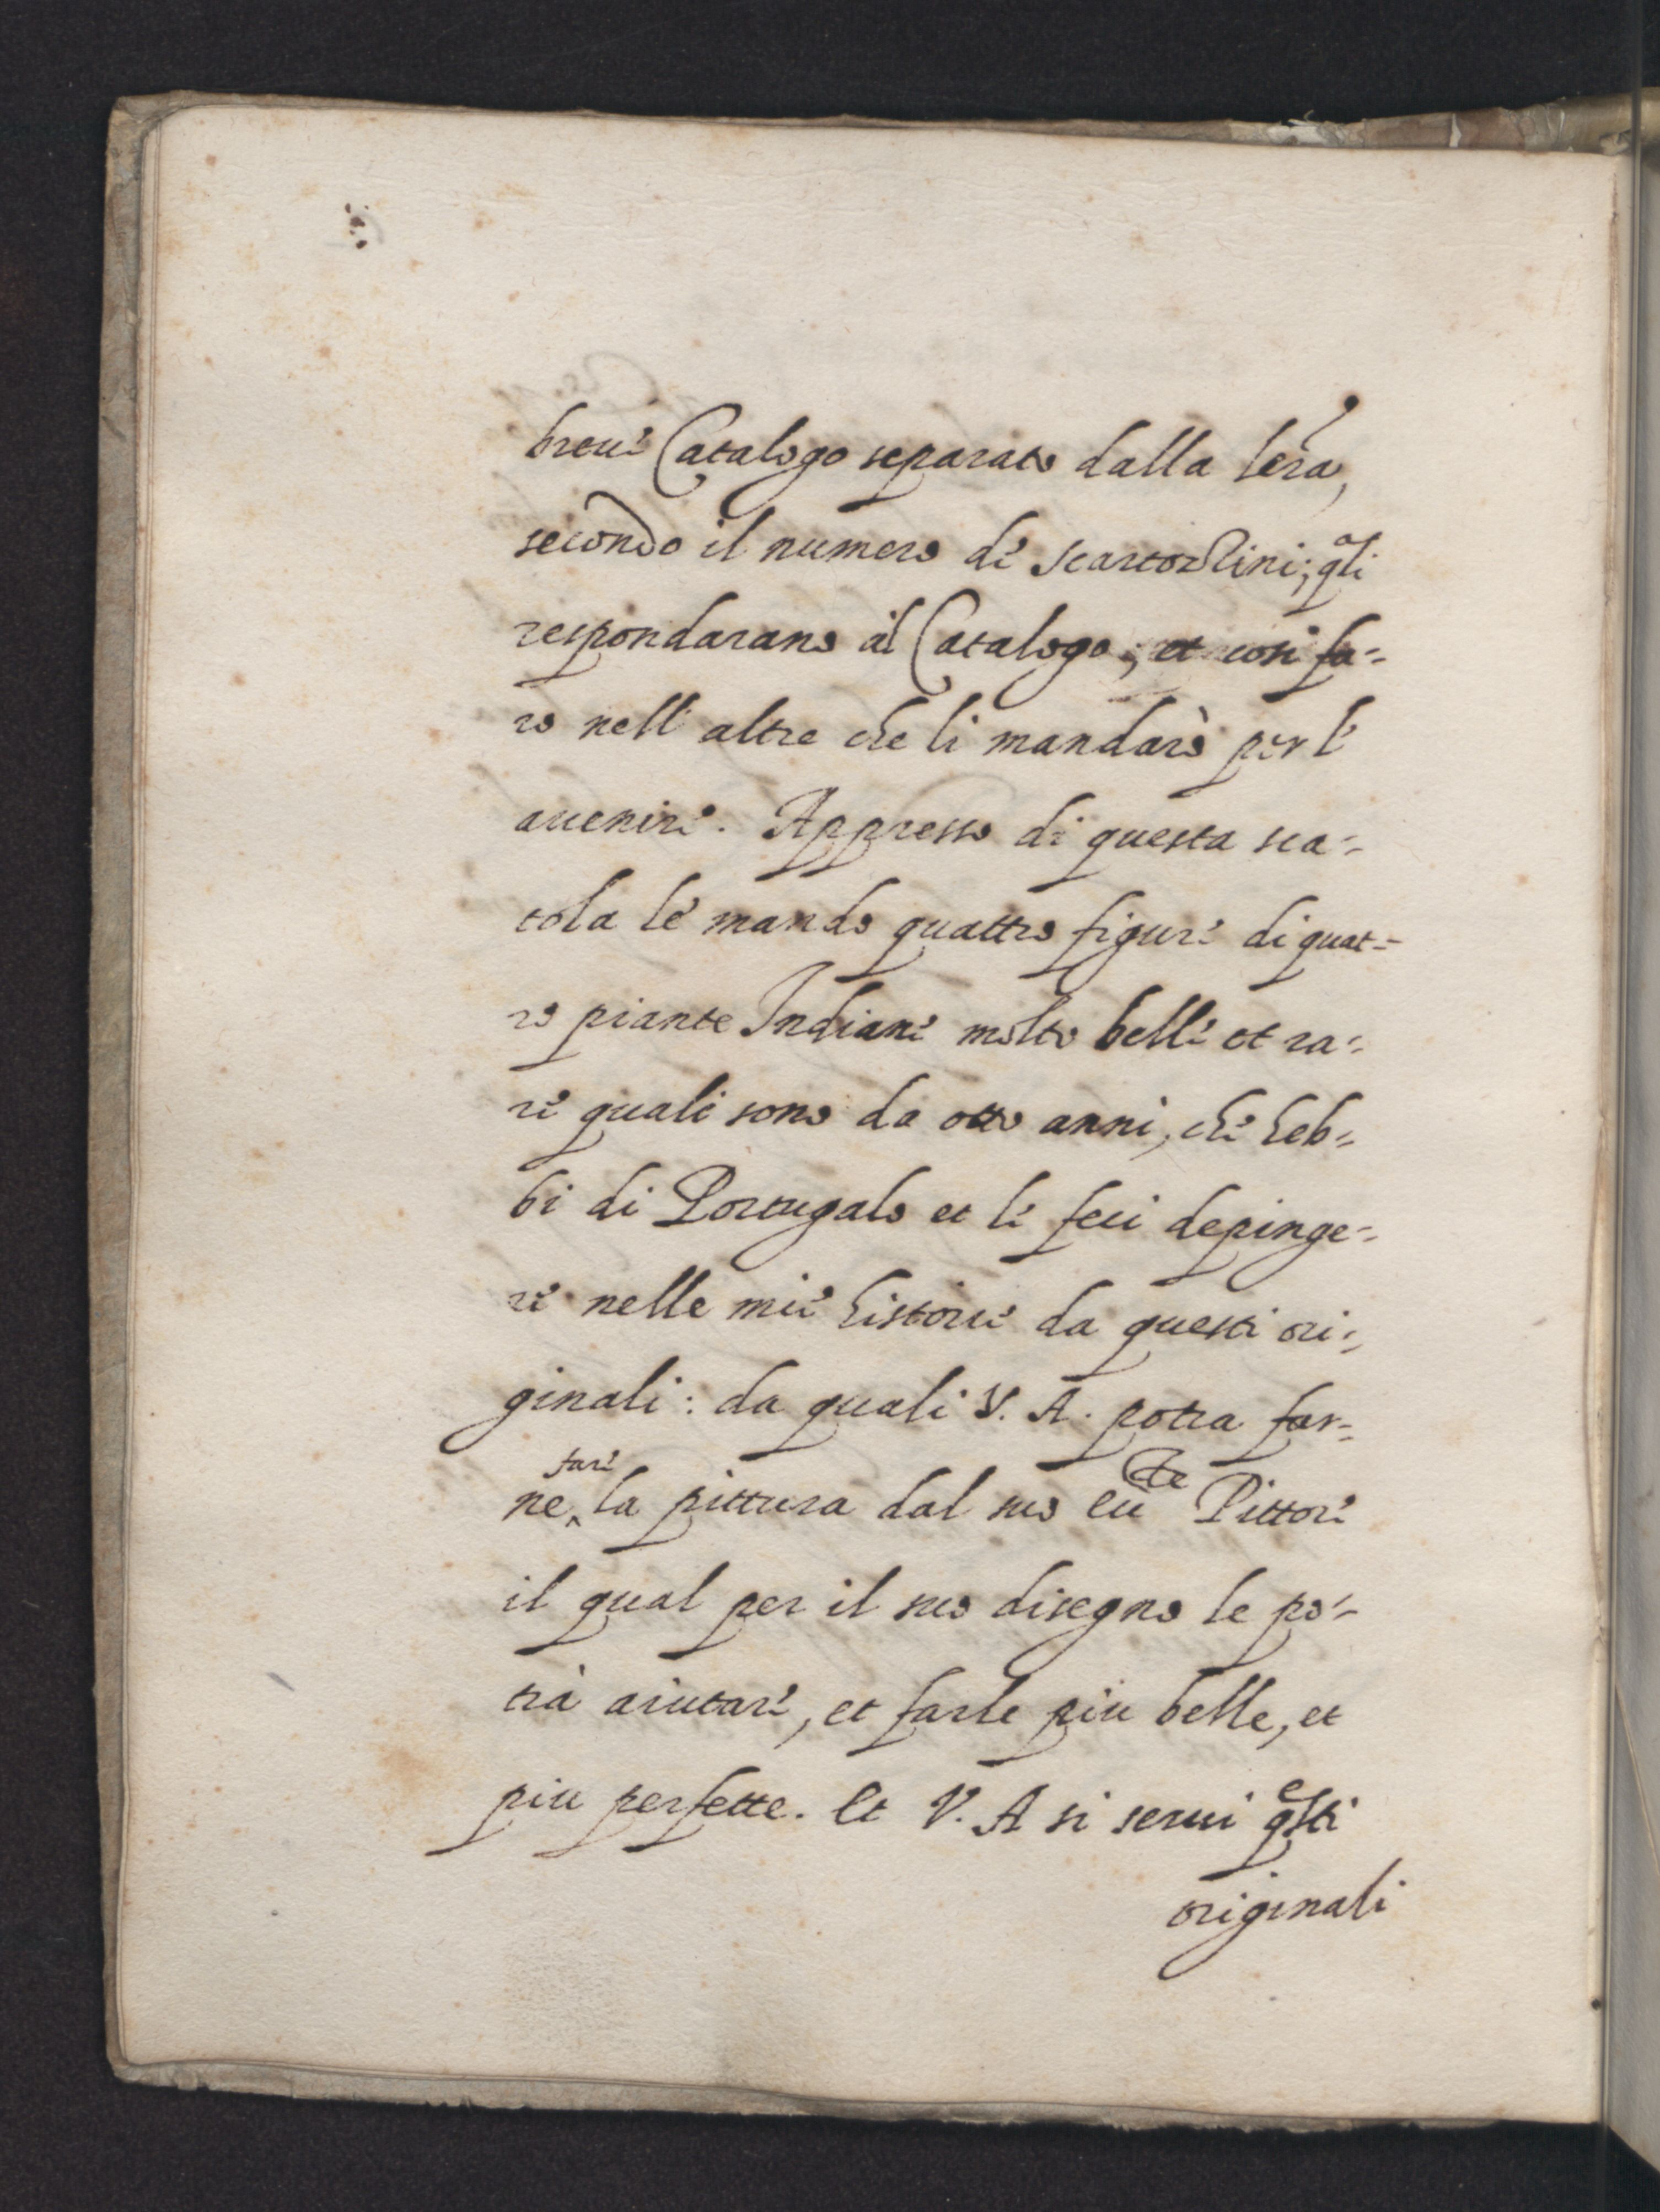 breue Catalogo separato dalla lr̃a,
secondo il numero de scartozzini; qĩli
respondarano al Catalogo; et cosi fa=
ro nell' altre che li mandarò per l'
auenire. Appresso di questa sca=
tola le mando quattro figure di quat=
ro piante Indiane molto belle et ra=
re quali sono da otto anni, che heb=
bi di Portugalo et le feci depinge=
re nelle mie historie da questi ori=
ginali: da quali V. A. potra far=
fare
ne la pittura dal suo ecc.te Pittore
il qual per il suo disegno le po=
trà aiutare, et farle piu belle, et
piu perfette. Et V. A si serui qẽsti
originali